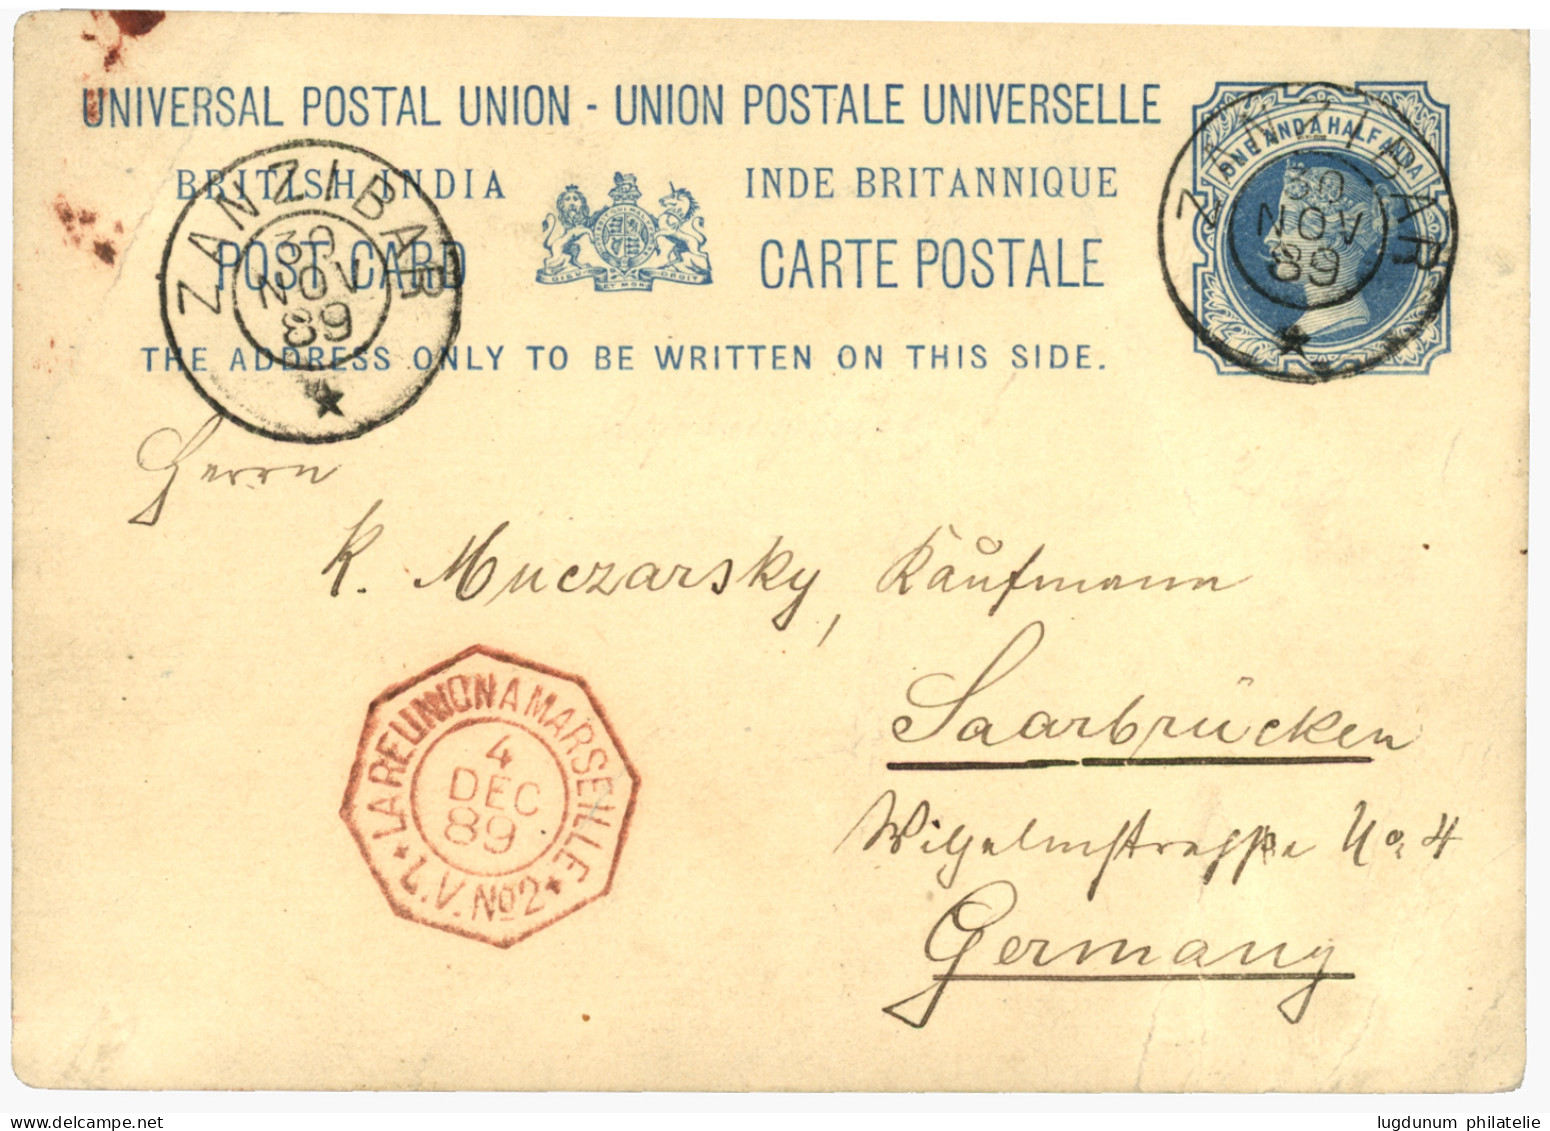 UNIVERSAL POSTAL UNION - UNION POSTALE UNIVERSELLE
BRITISH INDIA INDE BRITANNIQUE
POST CARD CARTE POSTALE
THE ADDRESS ONLY TO BE WRITTEN ON THIS SIDE.
ONE ANNA HALF ANNA
ZANZIBAR
30
NOV
89
ZANZIBAR
30
NOV
89
DIEU ET MON DROIT
Herrn
K. Muczarsky, Kaufmann
Saarbrücken
Wilhelmstrasse No. 4
Germany
LA REUNION A MARSEILLE
4
DEC
89
L.V. No 2
lugdunum philatelie